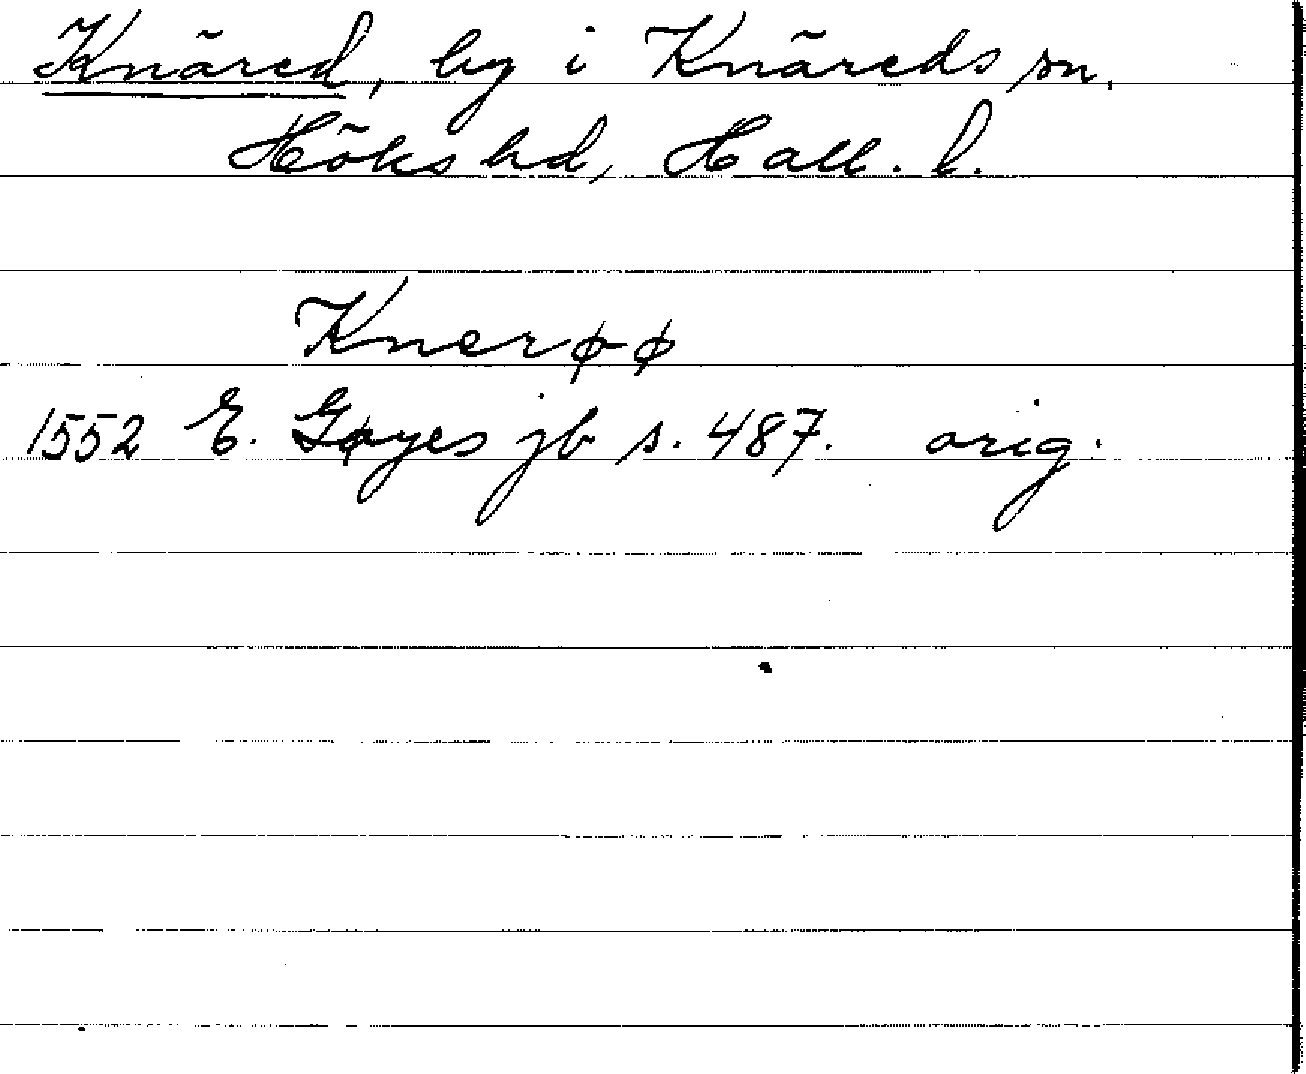 Knäred, by i Knäreds sn.
Höks hd, Hall. l.
Knerøø
1552 E. Gøyes jb s. 487. orig.